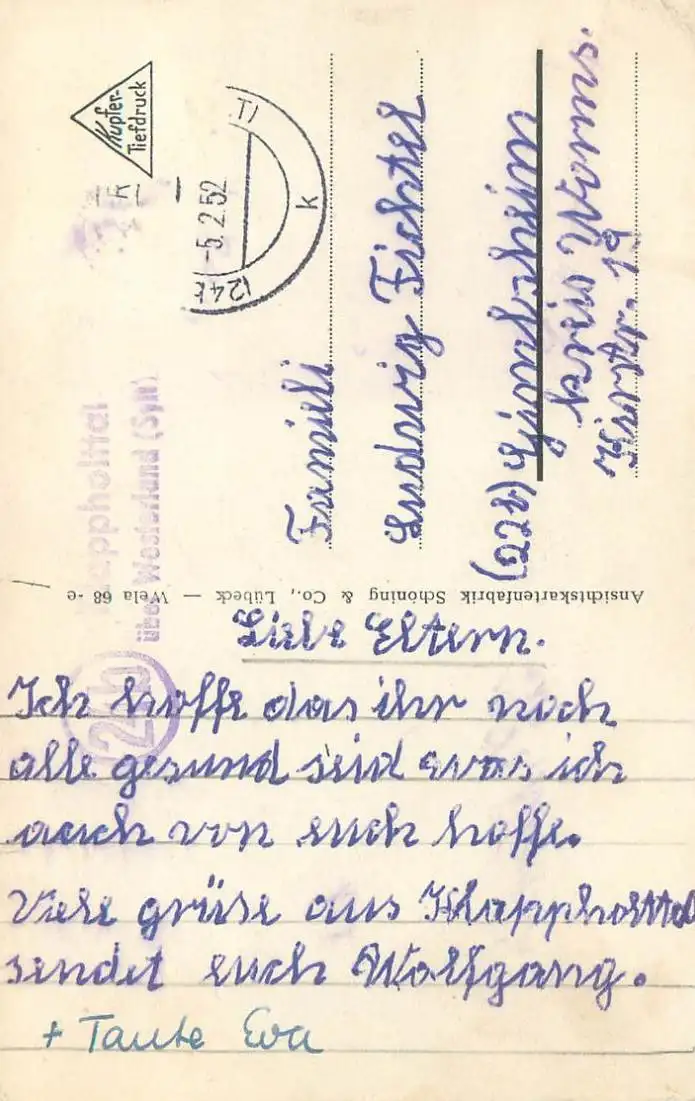 Liebe Eltern.
Ich hoffe das ihr noch
alle gesund seid was ich
auch von euch hoffe.
Viele grüse aus Klappholttal
sendet euch Wolfgang.
+ Tante Eva
Ansichtskartenfabrik Schöning & Co., Lübeck — Wela 68-e
Kupfer-
Tiefdruck
-5.2.52
(24b
k
Klappholttal
über Westerland (Sylt)
24b
Famieli
Ludwig Fichtel
(22b)
kreis Worms.
19